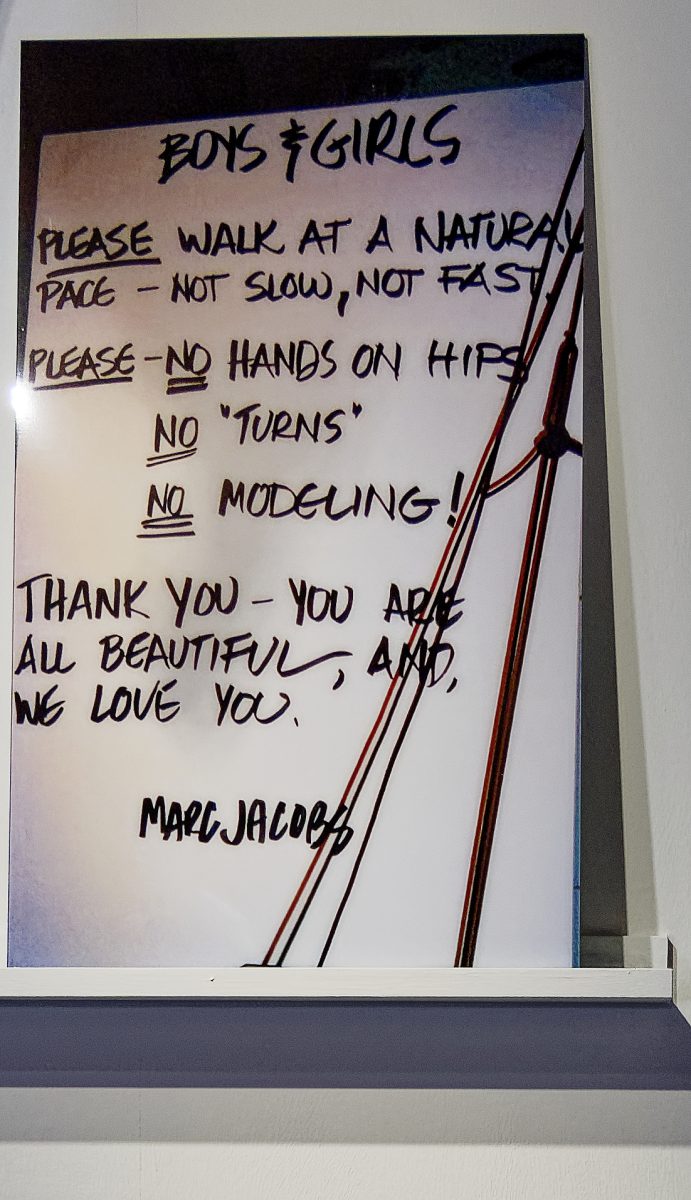 BOYS & GIRLS
PLEASE WALK AT A NATURAL
PACE - NOT SLOW, NOT FAST.
PLEASE - NO HANDS ON HIPS
NO "TURNS"
NO MODELING!
THANK YOU - YOU ARE
ALL BEAUTIFUL, AND,
WE LOVE YOU.
MARC JACOBS